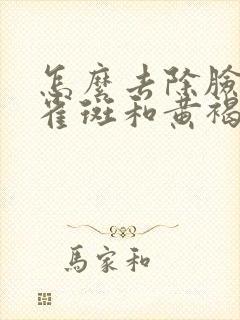 怎麼去除臉
雀斑和黃褐
馬家和